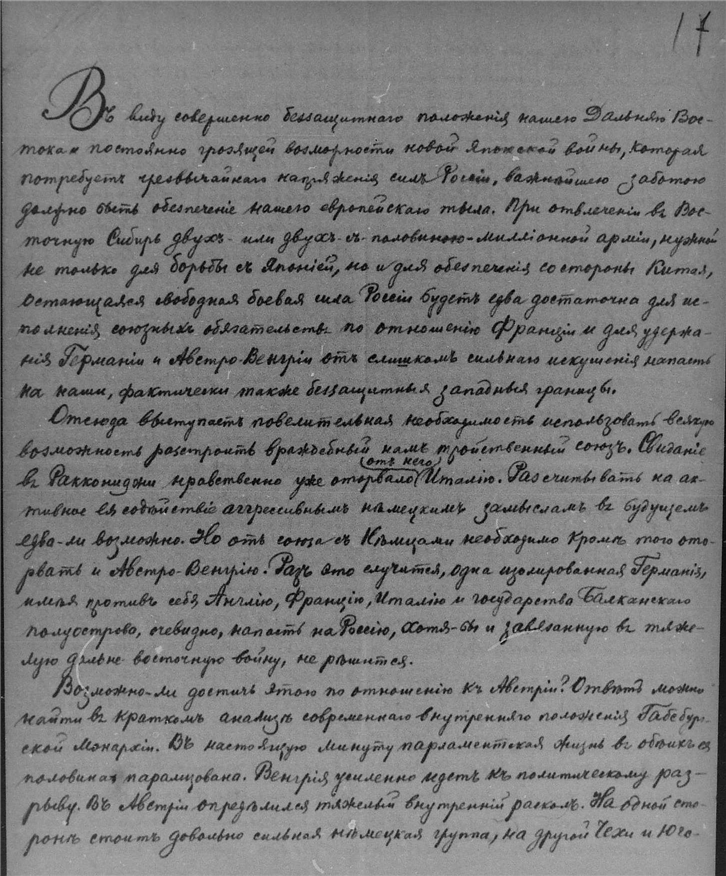 17
Въ виду совершенно беззащитнаго положенія нашего Дальняго Вос-
тока и постоянно грозящей возможности новой Японской войны, которая
потребуетъ чрезвычайнаго напряженія силъ Россіи, важнѣйшею заботою
должно быть обезпеченіе нашего европейскаго тыла. При отвлеченіи въ Вос-
точную Сибирь двухъ- или двухъ-съ-половиною-милліонной арміи, нужной
не только для борьбы съ Японіей, но и для обезпеченія со стороны Китая,
остающаяся свободная боевая сила Россіи будетъ едва достаточна для ис-
полненія союзныхъ обязательствъ по отношенію Франціи и для удержа-
нія Германіи и Австро-Венгріи отъ слишкомъ сильнаго искушенія напасть
на наши, фактически также беззащитныя западныя границы.
Отсюда выступаетъ повелительная необходимость использовать всякую
возможность разстроить враждебный намъ тройственный союзъ. Свиданіе
въ Раккониджи нравственно уже оторвало (отъ него) Италію. Разсчитывать на ак-
тивное ея содѣйствіе аггрессивнымъ нѣмецкимъ замысламъ въ будущемъ
едва-ли возможно. Но отъ союза съ Нѣмцами необходимо кромѣ того ото-
рвать и Австро-Венгрію. Разъ это случится, одна изолированная Германія,
имѣя противъ себя Англію, Францію, Италію и государства Балканскаго
полуострова, очевидно, напасть на Россію, хотя-бы и завязанную въ тяже-
лую дальне-восточную войну, не рѣшится.
Возможно-ли достичь этого по отношенію къ Австріи? Отвѣтъ можно
найти въ краткомъ анализѣ современнаго внутренняго положенія Габсбург-
ской Монархіи. Въ настоящую минуту парламентская жизнь въ обѣихъ ея
половинахъ парализована. Венгрія усиленно идетъ къ политическому раз-
рыву. Въ Австріи опредѣлился тяжелый внутренній расколъ. На одной сто-
ронѣ стоитъ довольно сильная нѣмецкая группа, на другой Чехи и Юго-